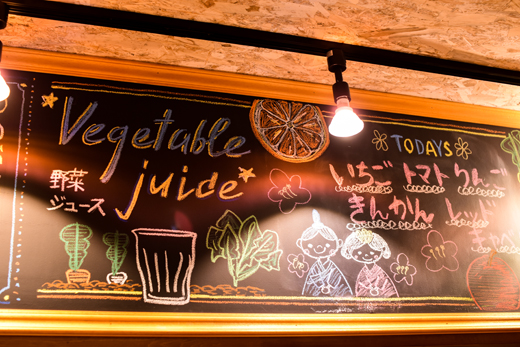 Vegetable
juice
野菜
ジュース
TODAYS
いちご トマト りんご
きんかん レッド
キャベ